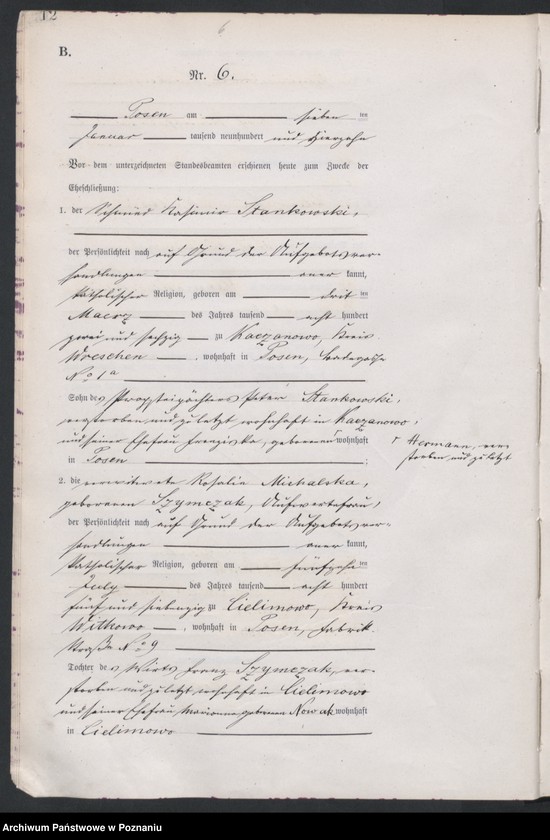 12
6
B.
Nr. 6.
Posen am sieben ten
Januar tausend neunhundert und vierzehn
Vor dem unterzeichneten Standesbeamten erschienen heute zum Zwecke der
Eheschließung:
1. der Schmied Kasimir Stankowski,
der Persönlichkeit nach auf Grund der Aufgebotsver-
handlungen aner kannt,
katholischer Religion, geboren am dritten
Maerz des Jahres tausend acht hundert
zwei und sechzig zu Kaczanowo, Kreis
Wreschen, wohnhaft in Posen,
No 1a
Sohn des Propsteipächters Peter Stankowski,
verstorben und zuletzt wohnhaft in Kaczanowo,
und seiner Ehefrau Franziska, geborenen wohnhaft
Γ Hermann, ver-
storben und zuletzt
in Posen ;
2. die verwitwete Rosalie Michalska,
geborenen Szymczak, Aufwartefrau,
der Persönlichkeit nach auf Grund der Aufgebotsver-
handlungen aner kannt,
katholischer Religion, geboren am fünfzehn ten
July des Jahres tausend acht hundert
fünf und siebenzig zu Cielimowo, Kreis
Witkowo, wohnhaft in Posen, Fabrik-
straße No 9
Tochter des Wirts Franz Szymczak, ver-
storben und zuletzt wohnhaft in Cielimowo
und seiner Ehefrau Marianna geborenen Nowak wohnhaft
in Cielimowo
Archiwum Państwowe w Poznaniu